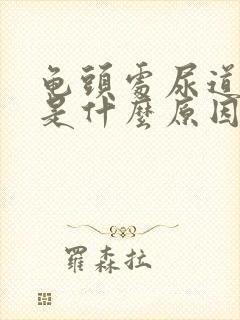 龟頭處尿道
是什麼原因
羅森拉